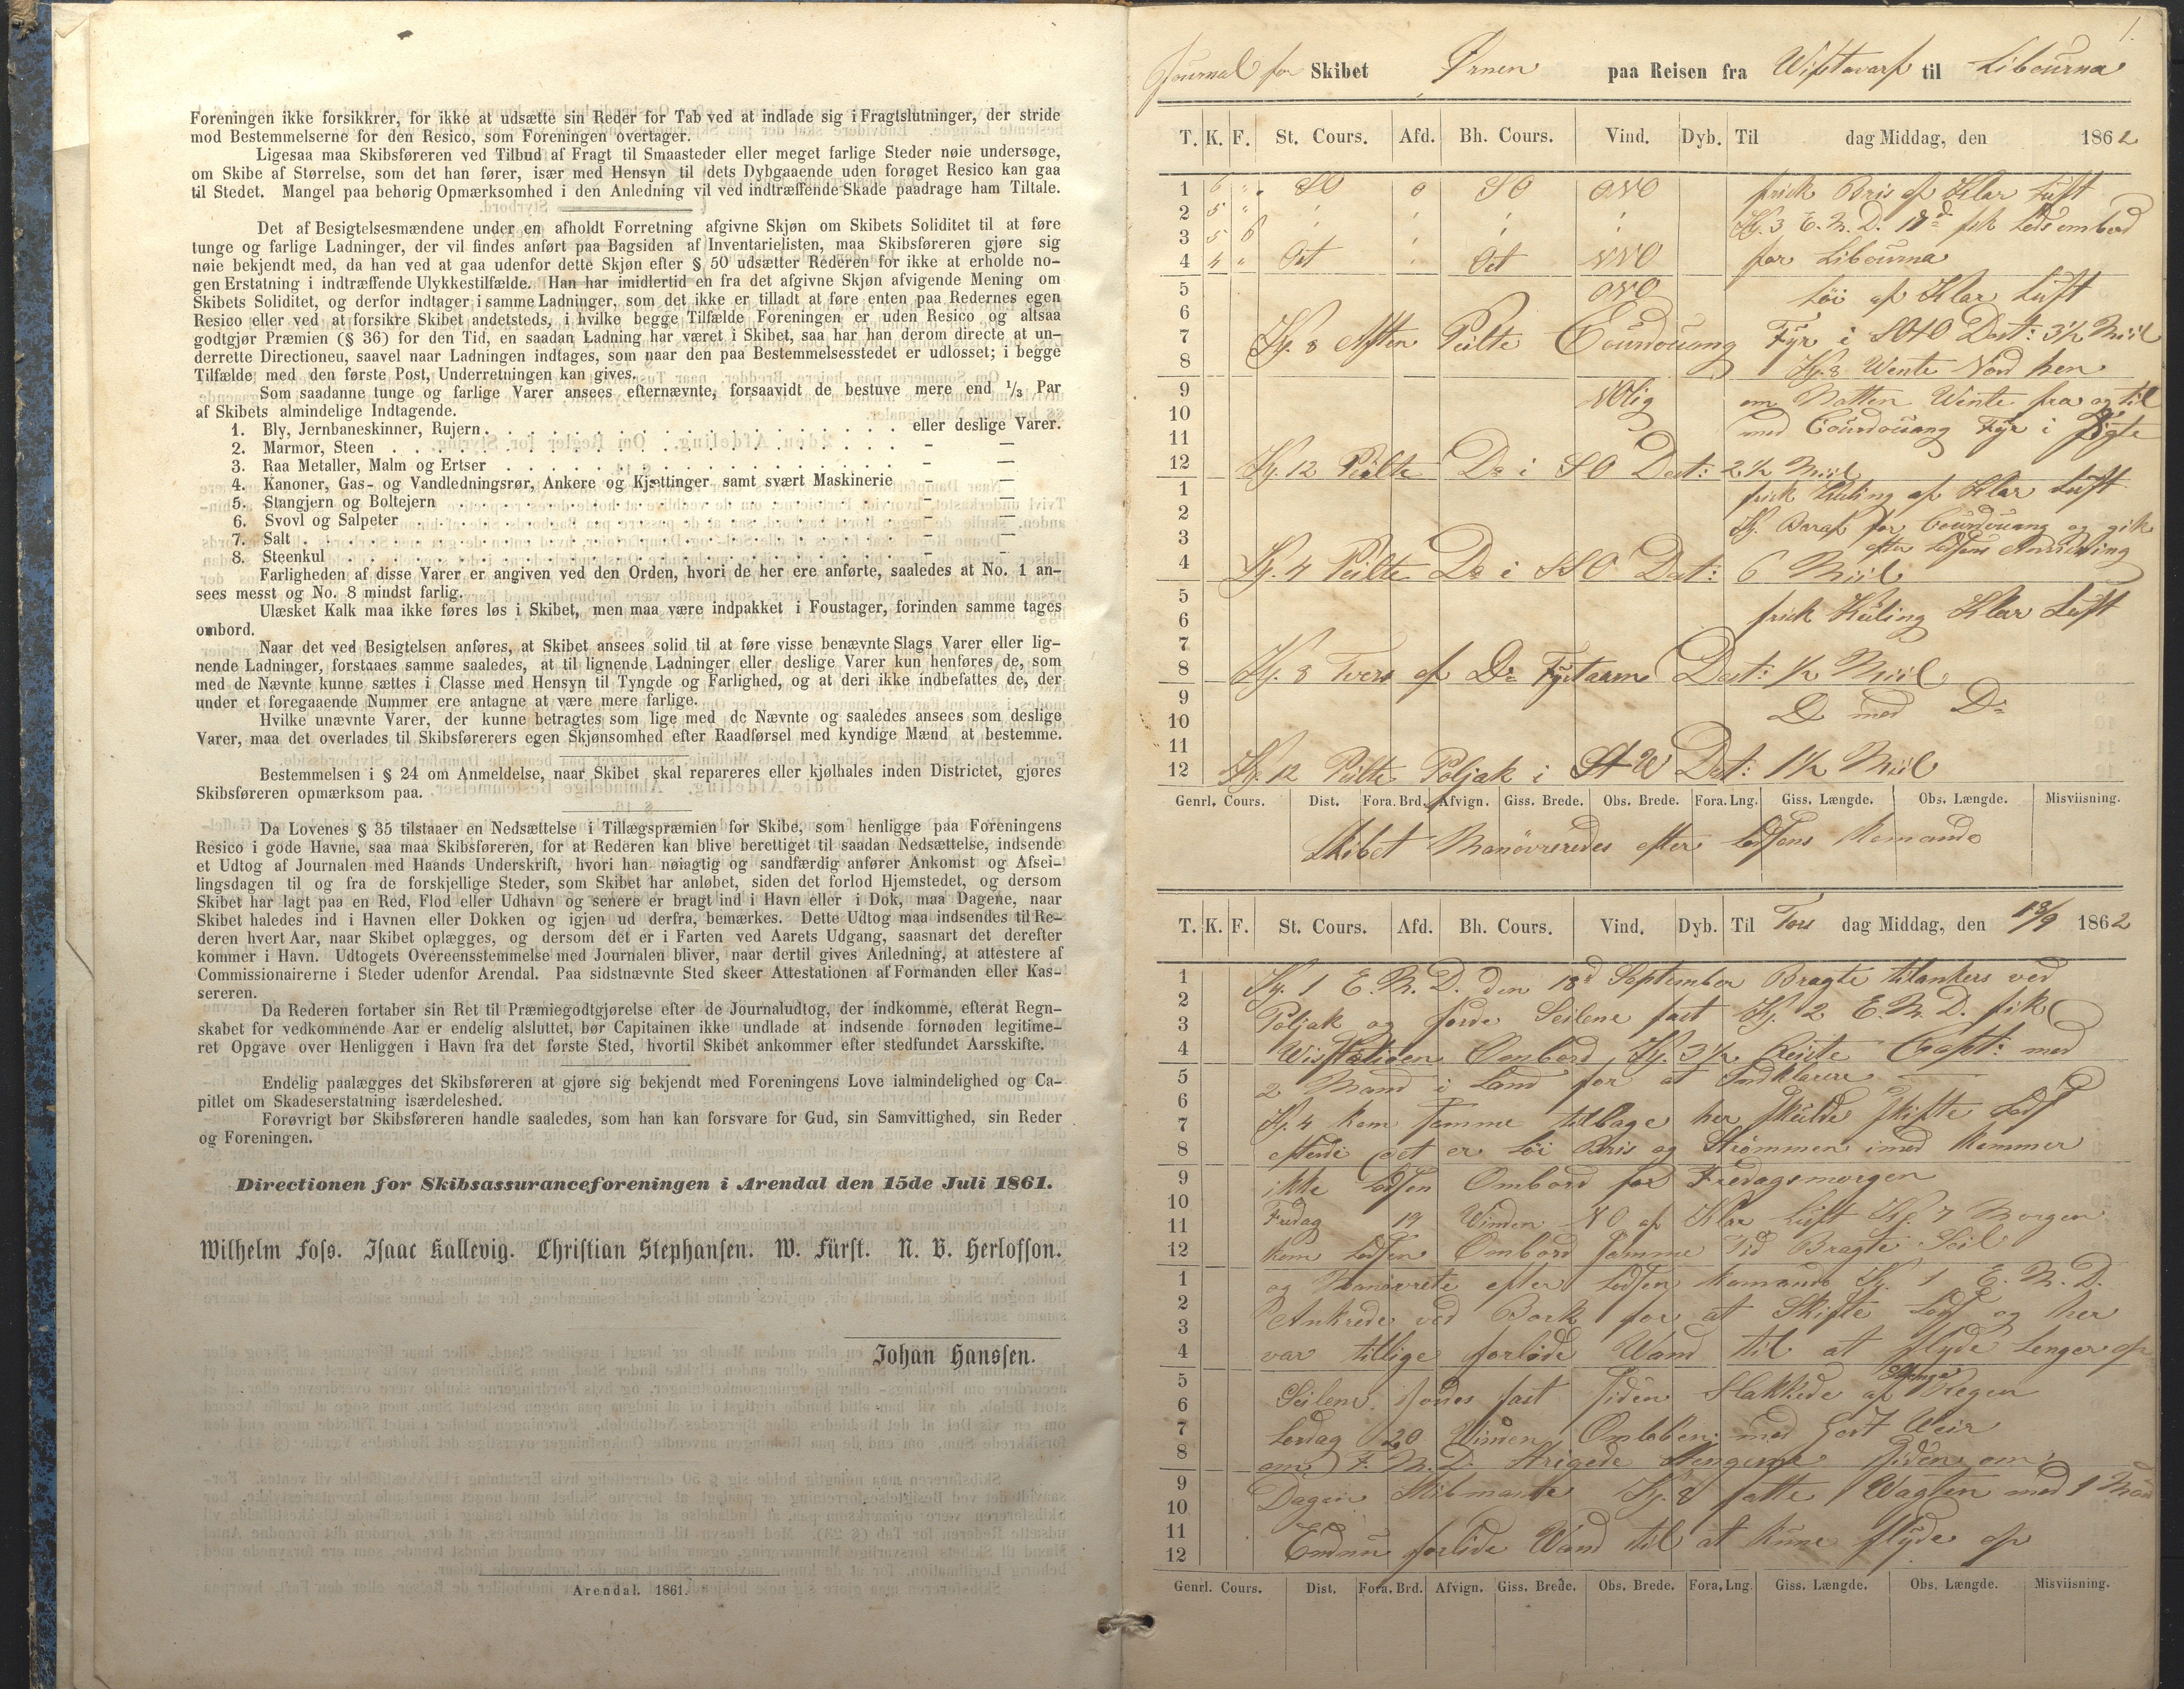 Foreningen ikke forsikkrer, for ikke at udsætte sin Reder for Tab ved at indlade sig i Fragtslutninger, der stride
mod Bestemmelserne for den Resico, som Foreningen overtager.
Ligesaa maa Skibsføreren ved Tilbud af Fragt til Smaasteder eller meget farlige Steder nøie undersøge,
om Skibe af Størrelse, som det han fører, især med Hensyn til dets Dybgaaende uden forøget Resico kan gaa
til Stedet. Mangel paa behørig Opmærksomhed i den Anledning vil ved indtræffende Skade paadrage ham Tiltale.
Det af Besigtelsesmændene under en afholdt Forretning afgivne Skjøn om Skibets Soliditet til at føre
tunge og farlige Ladninger, der vil findes anført paa Bagsiden af Inventarielisten, maa Skibsføreren gjøre sig
nøie bekjendt med, da han ved at gaa udenfor dette Skjøn efter § 50 udsætter Rederen for ikke at erholde no-
gen Erstatning i indtræffende Ulykkestilfælde. Han har imidlertid en fra det afgivne Skjøn afvigende Mening om
Skibets Soliditet, og derfor indtager i samme Ladninger, som det ikke er tilladt at føre enten paa Redernes egen
Resico eller ved at forsikre Skibet andetsteds, i hvilke begge Tilfælde Foreningen er uden Resico og altsaa
godtgjør Præmien (§ 36) for den Tid, en saadan Ladning har været i Skibet, saa har han derom directe at un-
derrette Directioneu, saavel naar Ladningen indtages, som naar den paa Bestemmelsesstedet er udlosset; i begge
Tilfælde med den første Post, Underretningen kan gives.
Som saadanne tunge og farlige Varer ansees efternævnte, forsaavidt de bestuve mere end 1/3 Par
af Skibets almindelige Indtagende.
1. Bly, Jernbaneskinner, Rujern . . . eller deslige Varer.
2. Marmor, Steen . . . - —
3. Raa Metaller, Malm og Ertser . . . - —
4. Kanoner, Gas- og Vandledningsrør, Ankere og Kjættinger samt svært Maskinerie - —
5. Stangjern og Boltejern . . . - —
6. Svovl og Salpeter . . . - —
7. Salt . . . - —
8. Steenkul . . . - —
Farligheden af disse Varer er angiven ved den Orden, hvori de her ere anførte, saaledes at No. 1 an-
sees messt og No. 8 mindst farlig.
Ulæsket Kalk maa ikke føres løs i Skibet, men maa være indpakket i Foustager, forinden samme tages
ombord.
Naar det ved Besigtelsen anføres, at Skibet ansees solid til at føre visse benævnte Slags Varer eller lig-
nende Ladninger, forstaaes samme saaledes, at til lignende Ladninger eller deslige Varer kun henføres de, som
med de Nævnte kunne sættes i Classe med Hensyn til Tyngde og Farlighed, og at deri ikke indbefattes de, der
under et foregaaende Nummer ere antagne at være mere farlige.
Hvilke unævnte Varer, der kunne betragtes som lige med de Nævnte og saaledes ansees som deslige
Varer, maa det overlades til Skibsførerers egen Skjønsomhed efter Raadførsel med kyndige Mænd at bestemme.
Bestemmelsen i § 24 om Anmeldelse, naar Skibet skal repareres eller kjølhales inden Districtet, gjøres
Skibsføreren opmærksom paa.
Da Lovenes § 35 tilstaaer en Nedsættelse i Tillægspræmien for Skibe, som henligge paa Foreningens
Resico i gode Havne, saa maa Skibsføreren, for at Rederen kan blive berettiget til saadan Nedsættelse, indsende
et Udtog af Journalen med Haands Underskrift, hvori han nøiagtig og sandfærdig anfører Ankomst og Afsei-
lingsdagen til og fra de forskjellige Steder, som Skibet har anløbet, siden det forlod Hjemstedet, og dersom
Skibet har lagt paa en Red, Flod eller Udhavn og senere er bragt ind i Havn eller i Dok, maa Dagene, naar
Skibet haledes ind i Havnen eller Dokken og igjen ud derfra, bemærkes. Dette Udtog maa indsendes til Re-
deren hvert Aar, naar Skibet oplægges, og dersom det er i Farten ved Aarets Udgang, saasnart det derefter
kommer i Havn. Udtogets Overeensstemmelse med Journalen bliver, naar dertil gives Anledning, at attestere af
Commissionairerne i Steder udenfor Arendal. Paa sidstnævnte Sted skeer Attestationen af Formanden eller Kas-
sereren.
Da Rederen fortaber sin Ret til Præmiegodtgjørelse efter de Journaludtog, der indkomme, efterat Regn-
skabet for vedkommende Aar er endelig alsluttet, bør Capitainen ikke undlade at indsende fornøden legitime-
ret Opgave over Henliggen i Havn fra det første Sted, hvortil Skibet ankommer efter stedfundet Aarsskifte.
Endelig paalægges det Skibsføreren at gjøre sig bekjendt med Foreningens Love ialmindelighed og Ca-
pitlet om Skadeserstatning isærdeleshed.
Forøvrigt bør Skibsføreren handle saaledes, som han kan forsvare for Gud, sin Samvittighed, sin Reder
og Foreningen.
Directionen for Skibsassuranceforeningen i Arendal den 15de Juli 1861.
Wilhelm Foss. Isaac Kallevig. Christian Stephansen. W. Fürst. N. B. Herlofson.
Johan Hanssen.
Arendal. 1861.
1.
Journal for Skibet Ørnen paa Reisen fra til Libourna
T. K. F. St. Cours. Afd. Bh. Cours. Vind. Dyb. Til dag Middag, den 1862
1 6 " SO 0 SO ONO frisk Bris af Klar Luft
2 5 " Kl. 3 E. M. D. 18d fik Lods ombord
3 5 6
4 4 " Ost Ost NNO for Libourna
5 ONO Løi af Klar Luft
6
7 Kl. 8 Aften Peilte Courdouang Fyr i Dist: 3½ Miil
8 Kl. 8 Vente Nord hen
9 NOlig om Natten Vente fra og til
10 med Courdouang Fyr i Sigte
11
12 Kl. 12 Peilte Do i SO Dist: 2½ Miil
1 frisk Kuling af Klar Luft
2
3 Kl. for Courdouang og gik
efter Lodsens Anvisning
4 Kl. 4 Peilte Do i SSO Dist: 6 Miil
5
6 frisk Kuling Klar Luft
7
8 Kl. 8 Tvers af Do Fyrtaarn Dist: ½ Miil
9
10 D med Do
11
12 Kl. 12 Peilte Poljak i Dist: 1½ Miil
Genrl. Cours. Dist. Fora. Brd. Afvign. Giss. Brede. Obs. Brede. Fora. Lng. Giss. Længde. Obs. Længde. Misviisning.
Skibet Manøvreredes efter Lodsens Komando
T. K. F. St. Cours. Afd. Bh. Cours. Vind. Dyb. Til Tors dag Middag, den 18/9 1862
1 Kl. 1 E. M. D. den 18d September Bragte tilankers ved
2
3 Poljak og Seilene fast Kl. 2 E. M. D. fik
4 Ombord Kl. 3½ Reiste Capt: med
5 2 Mand i Land for at Indklarere
6
7 Kl. 4 kom samme tilbage her skulde skifte Lods
8 efterdi det er Løi Bris og Strømmen imod kommer
9 ikke Lodsen Ombord før Fredagsmorgen
10 Fredag 19 Vinden NO af Klar Luft Kl. 7 Morgen
11
12 kom Lodsen Ombord samme Tid Bragte Seil
1 og Manøvrete efter Lodsens Komando Kl. 1 E. M. D.
2 Ankrede ved Bork for at Skifte Lods og her
3
4 var tillige forlide Vand til at flyde lenger op
5 Seilene fast siden Slakkede af Regen
6
7 Lørdag 20 Vinden Omløben med Got Veir
8 om F. M. D. Strigede Stengerne siden om
9 Dagen Skibmante Kl. 8 satte Vagten med 1 Man
10
11
12 Endnu forlide Vand til at kune flyde op
Genrl. Cours. Dist. Fora. Brd. Afvign. Giss. Brede. Obs. Brede. Fora. Lng. Giss. Længde. Obs. Længde. Misviisning.